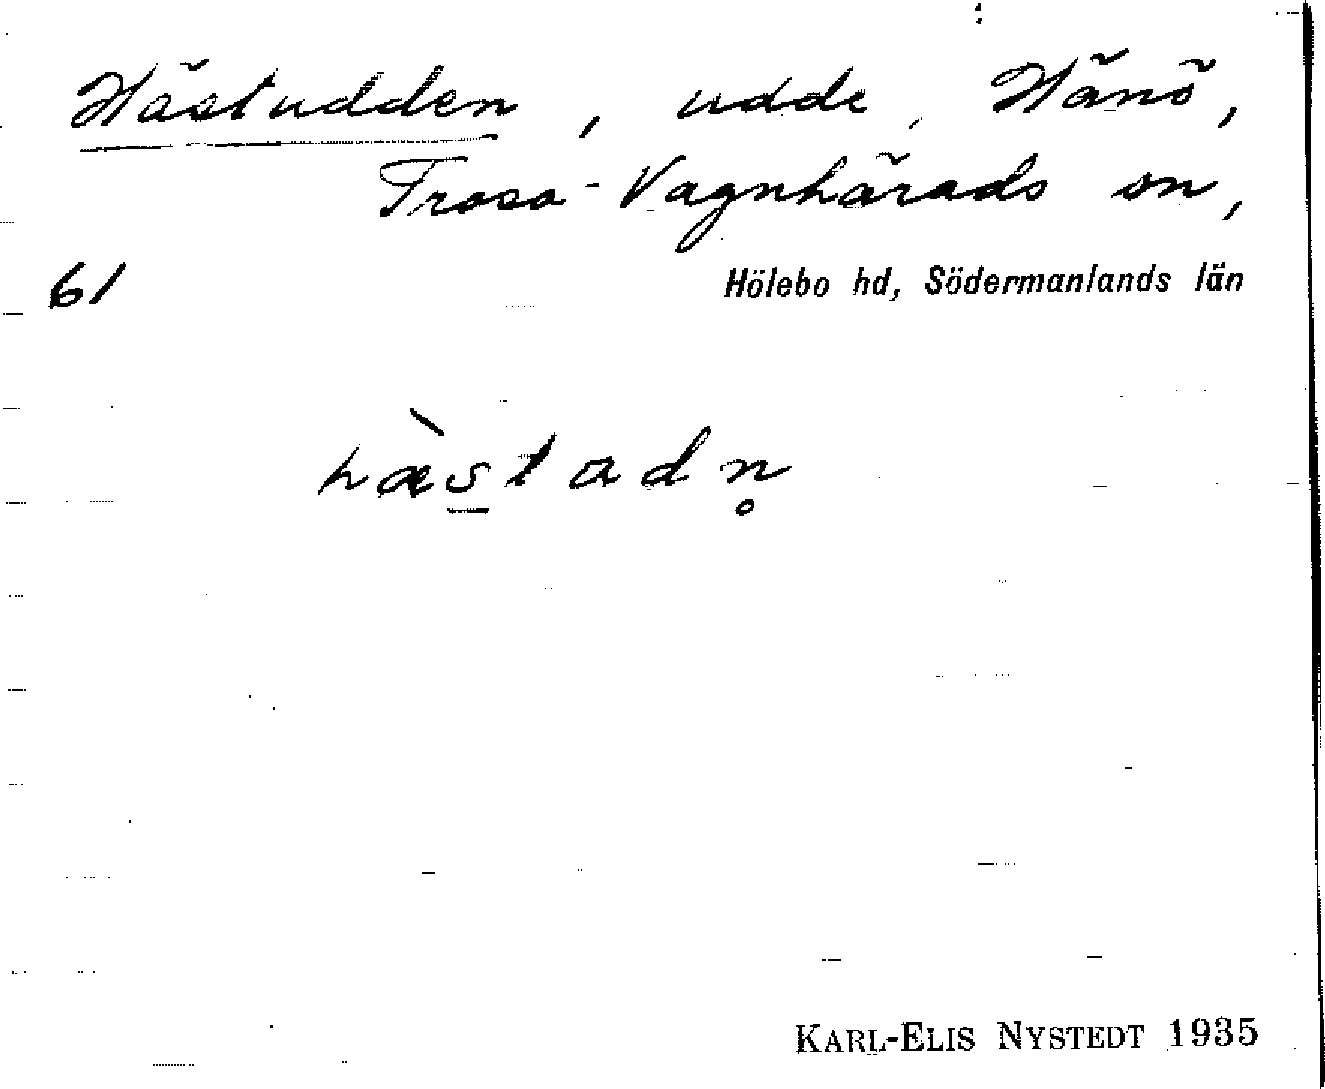 Hästudden, udde, Hänö,
Trosa-Vagnhärads sn,
61
Hölebo hd, Södermanlands län
hæ̀s̲tadn̥
KARL-ELIS NYSTEDT 1935